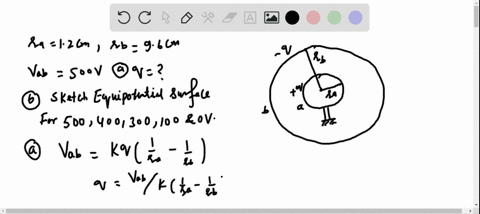 ra = 1.2cm, rb = 9.6cm
Vab = 500V (a) q = ?
(b) Sketch Equipotential Surface
For 500, 400, 300, 100 & 0V.
(a) Vab = Kq (1/ra - 1/rb)
q = Vab/K (1/ra - 1/rb
-q
rb
+q
ra
a
b